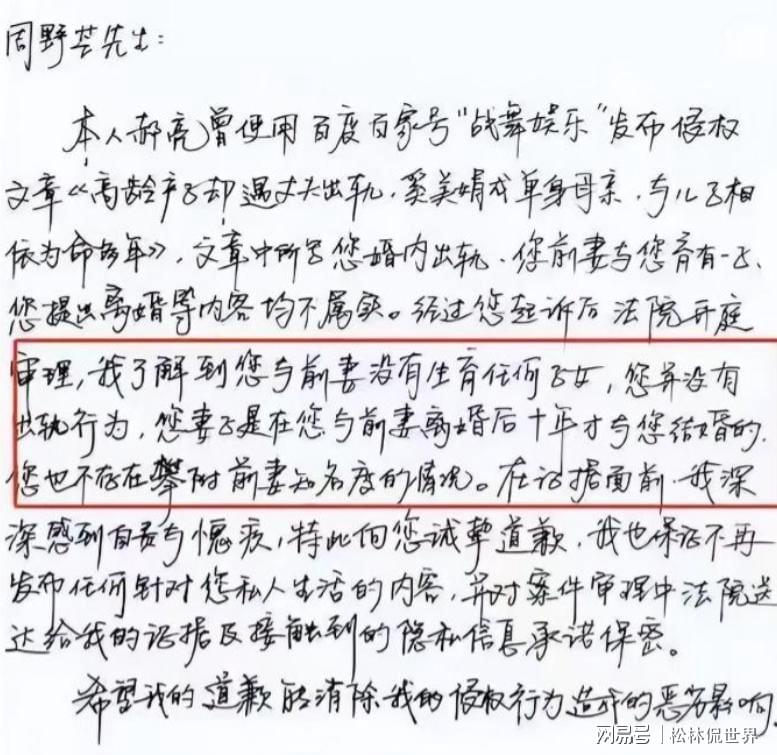 周野芒先生:
本人郝亮曾使用百度百家号“战舞娱乐”发布侵权
文章《高龄产子却遇丈夫出轨,奚美娟成单身母亲,与儿子相
依为命多年》,文章中所写您婚内出轨、您前妻与您育有一子、
您提出离婚等内容均不属实。经过您起诉后法院开庭
审理,我了解到您与前妻没有生育任何子女,您并没有
出轨行为,您妻子是在您与前妻离婚后十年才与您结婚的,
您也不存在攀附前妻知名度的情况。在证据面前,我深
深感到自责与愧疚,特此向您诚挚道歉,我也保证不再
发布任何针对您私人生活的内容,并对案件审理中法院送
达给我的证据及接触到的隐私信息承诺保密。
希望我的道歉能消除我的侵权行为造成的恶劣影响。
网易号 | 松林侃世界